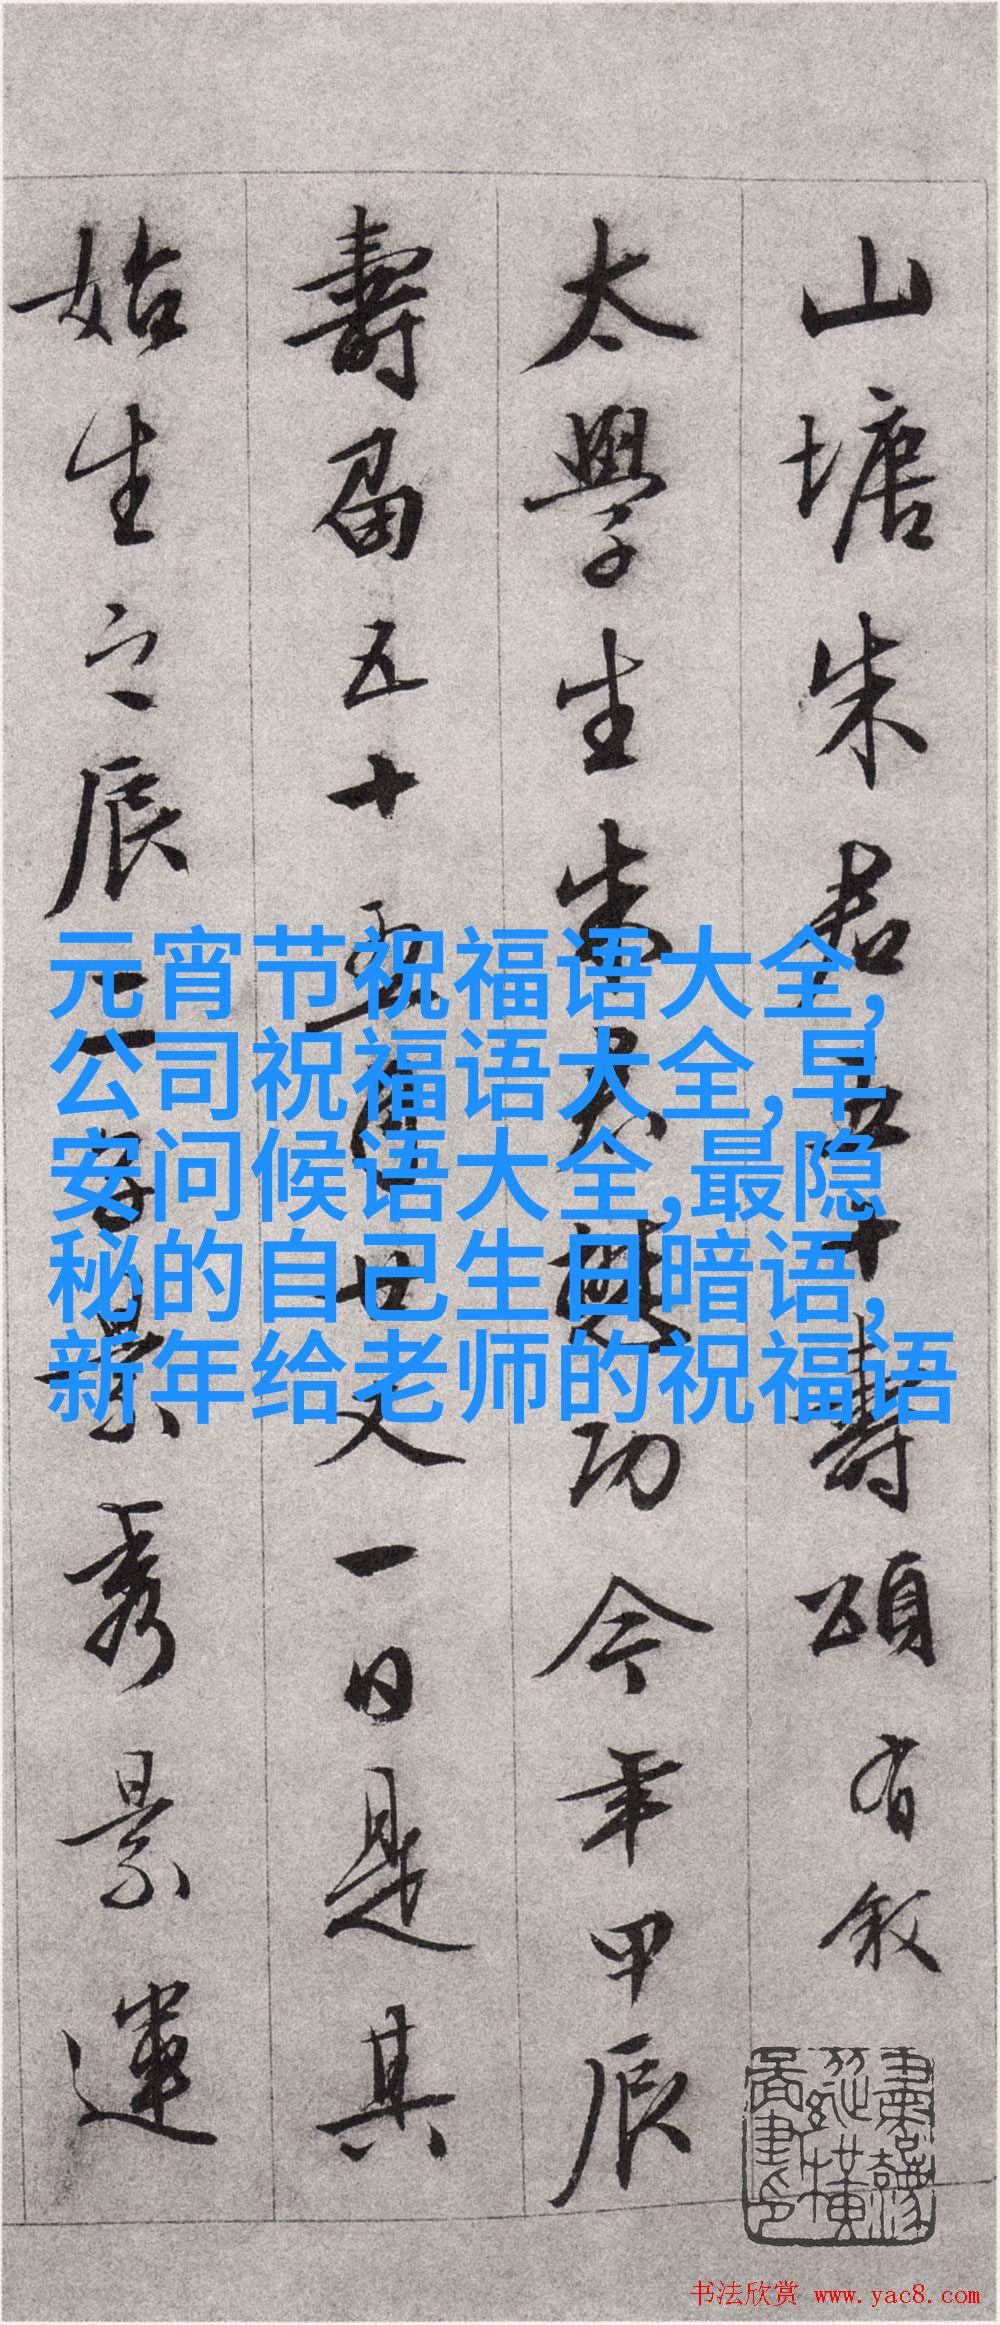 山塘朱君五十壽頌有敘
太學生朱君懋功今年甲辰
壽届五十孟夏廿又一日是其
始生之辰
景秀景運
元宵节祝福语大全,
公司祝福语大全,早
安问候语大全,最隐
秘的自己生日暗语,
新年给老师的祝福语
书法欣赏 www.yac8.com